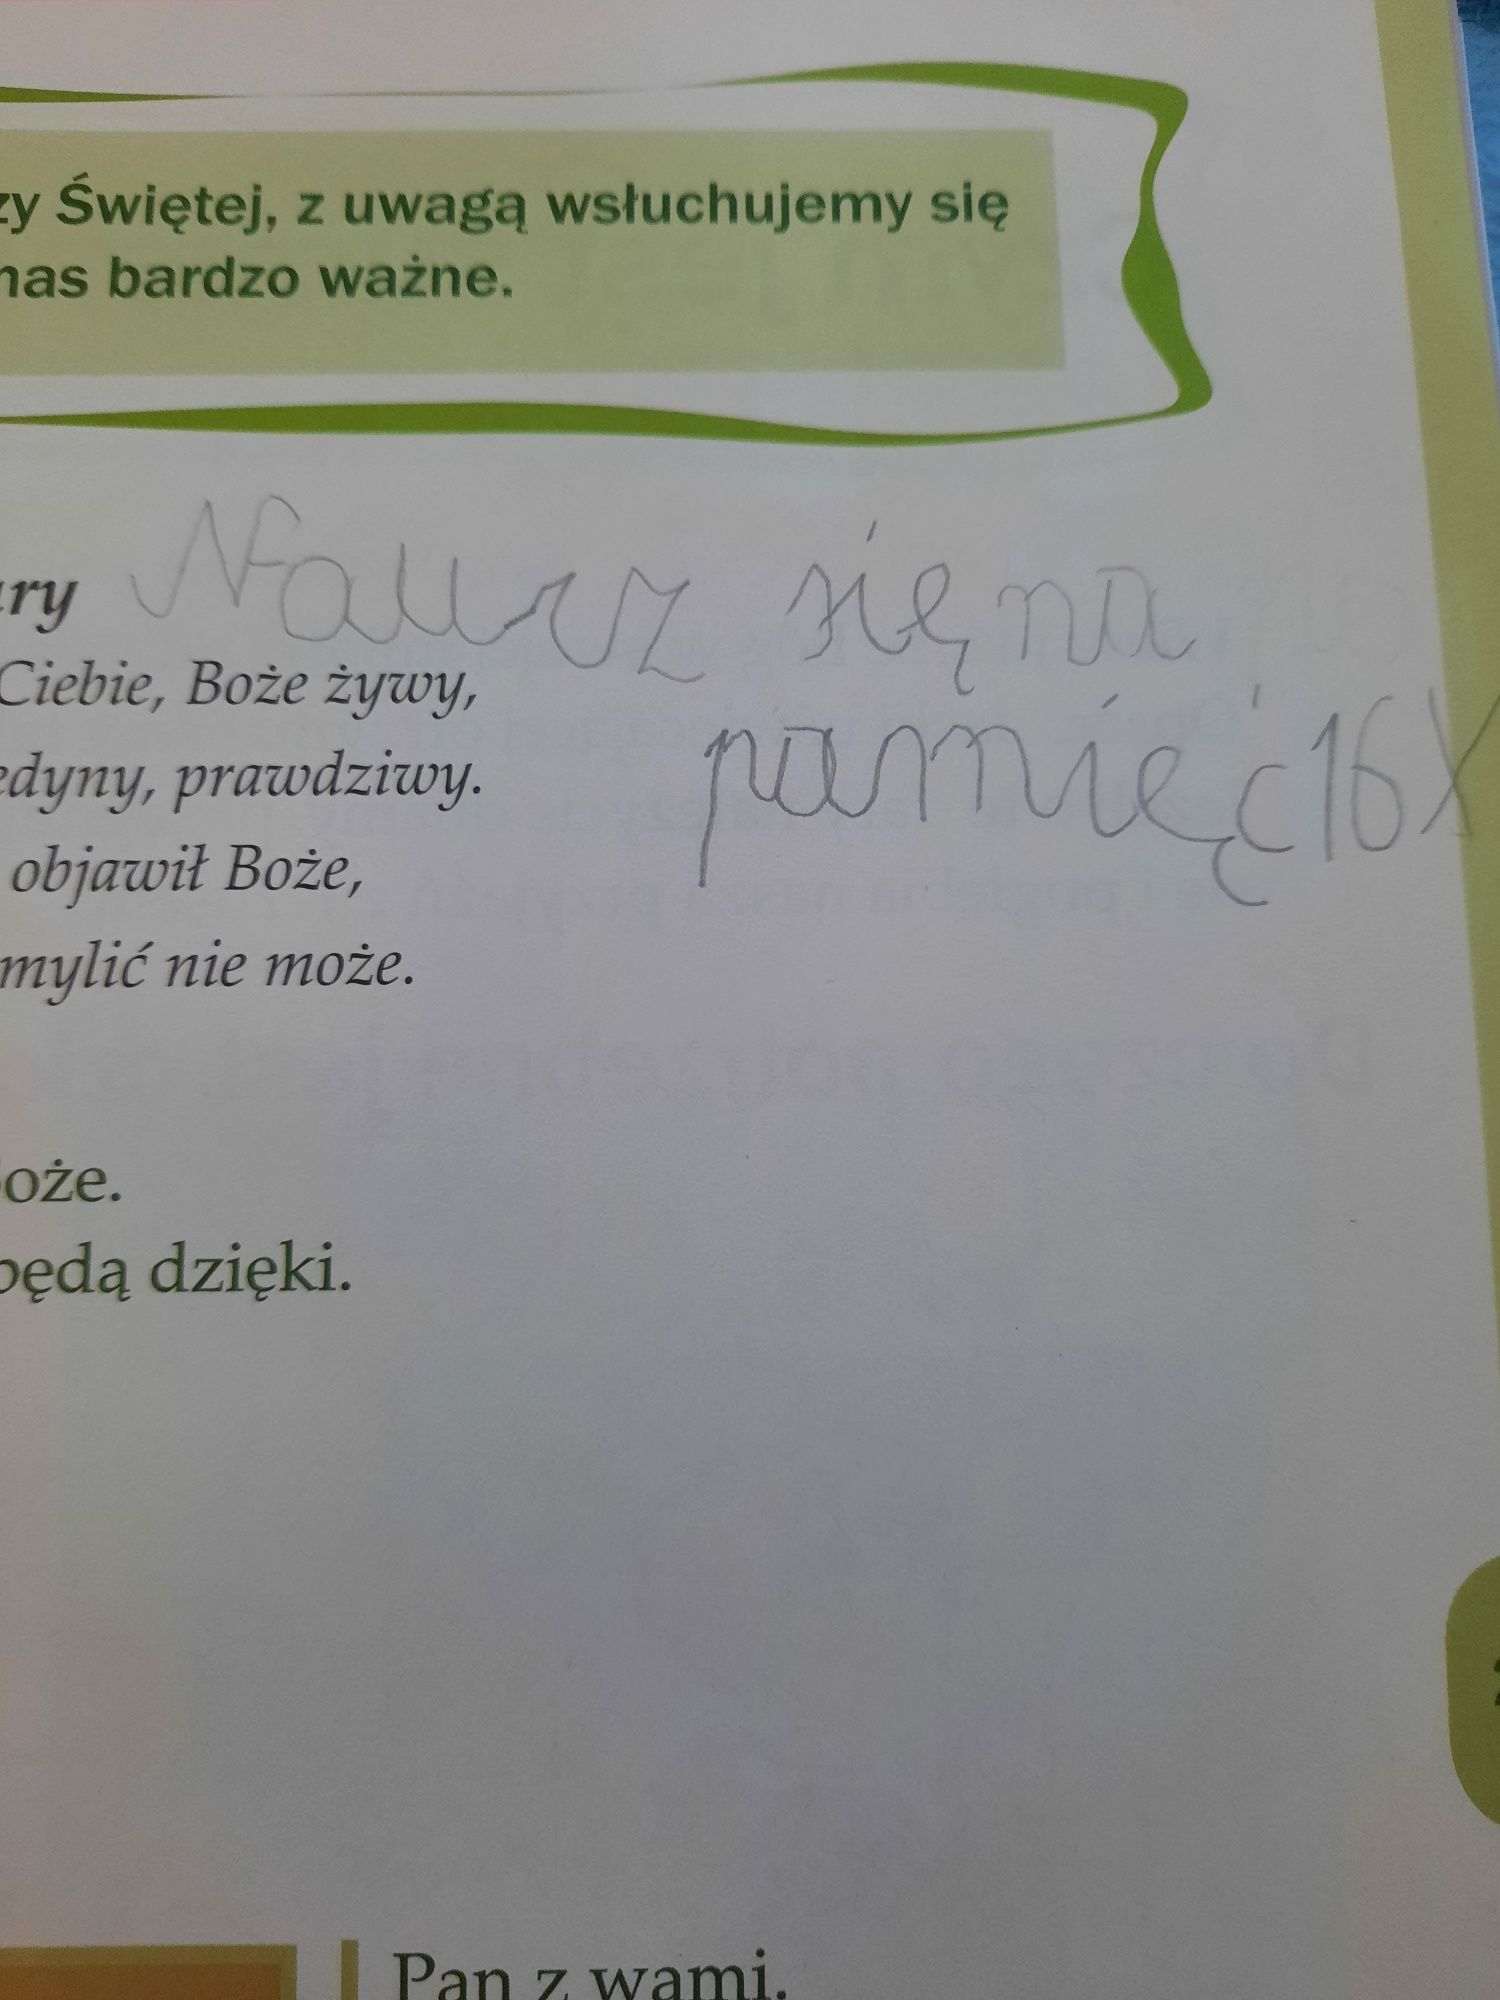 zy Świętej, z uwagą wsłuchujemy się
nas bardzo ważne.
Naucz się na
ry
Ciebie, Boże żywy,
pamięć 16X
edyny, prawdziwy.
objawił Boże,
mylić nie może.
oże.
będą dzięki.
Pan z wami.